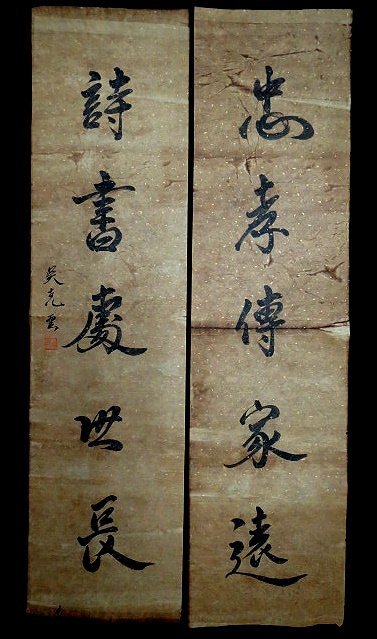 忠孝傳家遠
詩書處世長
吳克雲